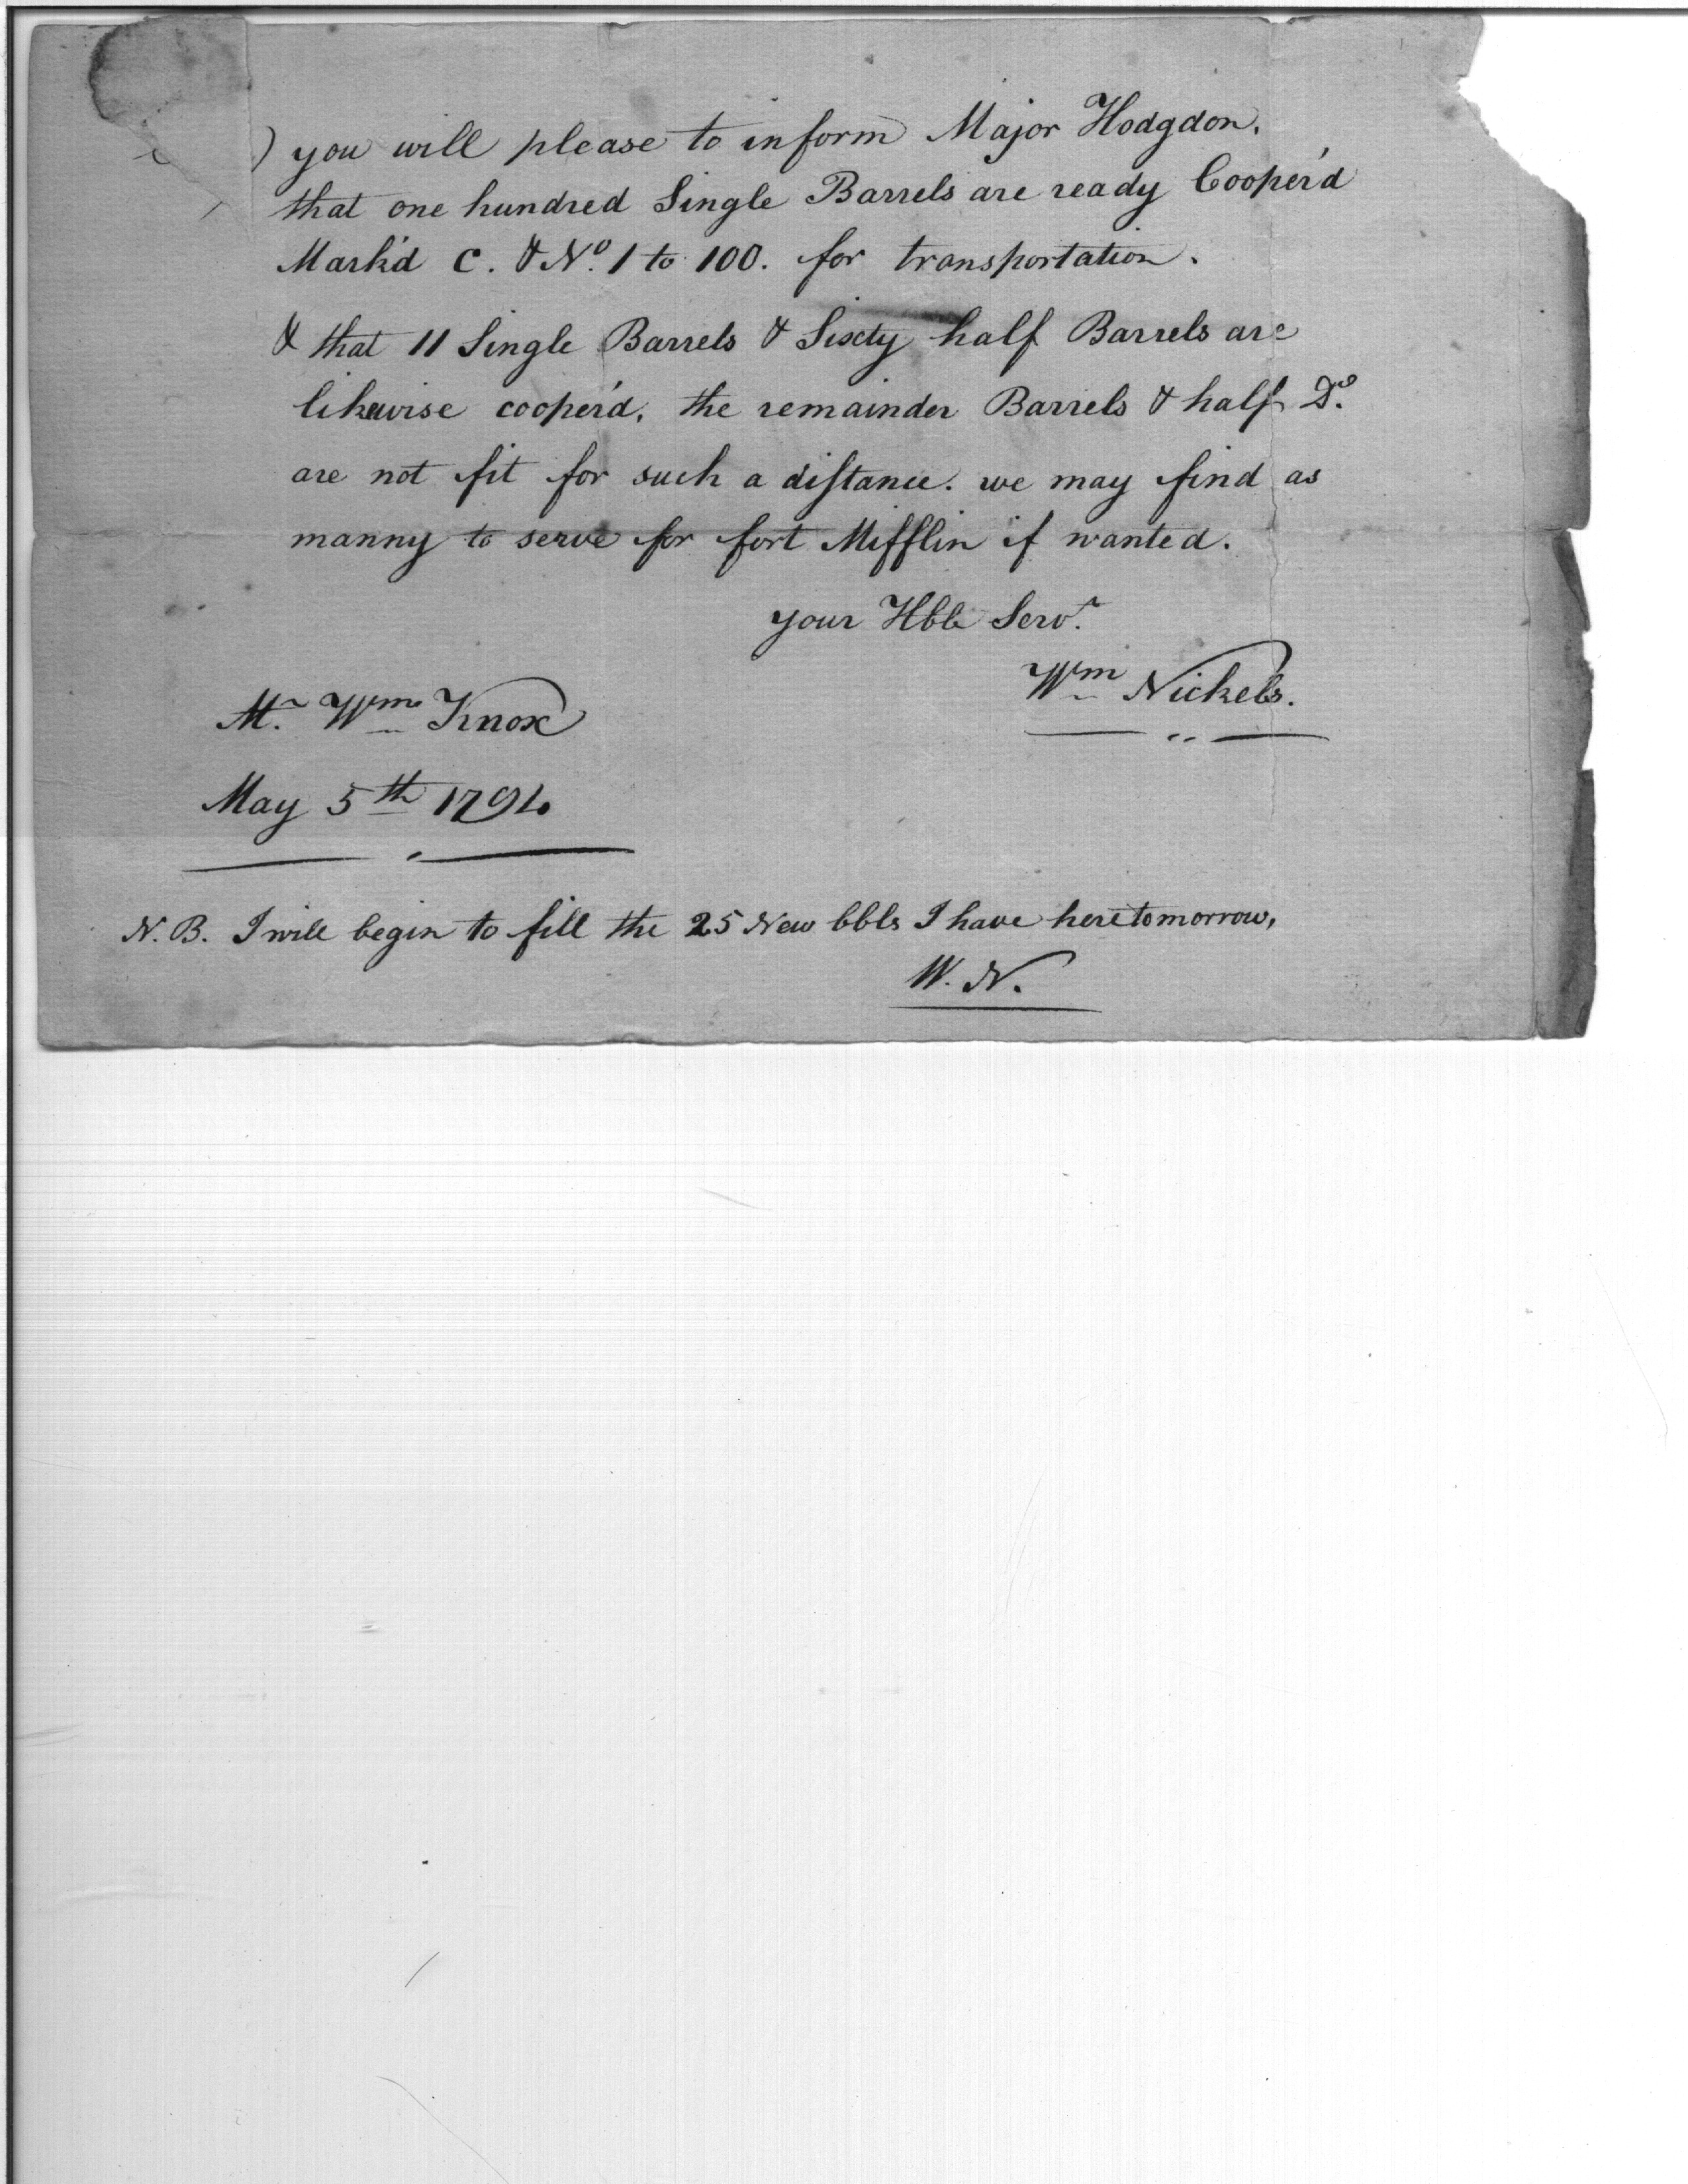 you will please to inform Major Hodgdon.
that one hundred Single Barrels are ready Cooper'd
Mark'd C. & No. 1 to 100. for transportation.
& that 11 Single Barrels & Sixty half Barrels are
likewise cooper'd, the remainder Barrels & half Do.
are not fit for such a distance. we may find as
manny to serve for fort Mifflin if wanted.
your Hble Servt.
Wm Nickels.
Mr. Wm Knox
May 5th 1794.
N.B. I will begin to fill the 25 New bbls I have here tomorrow,
W. N.